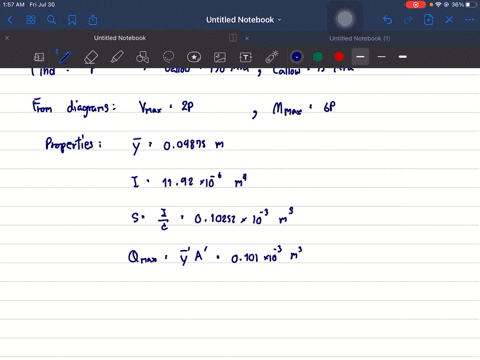 1:57 AM Fri Jul 30
36%
Untitled Notebook
Untitled Notebook
Untitled Notebook (1)
From diagrams: Vmax = 2P , Mmax = 6P
Properties: ȳ = 0.04875 m
I = 11.92 × 10⁻⁶ m⁴
S = I/c = 0.10252 × 10⁻³ m³
Qmax = ȳ' A' = 0.101 × 10⁻³ m³